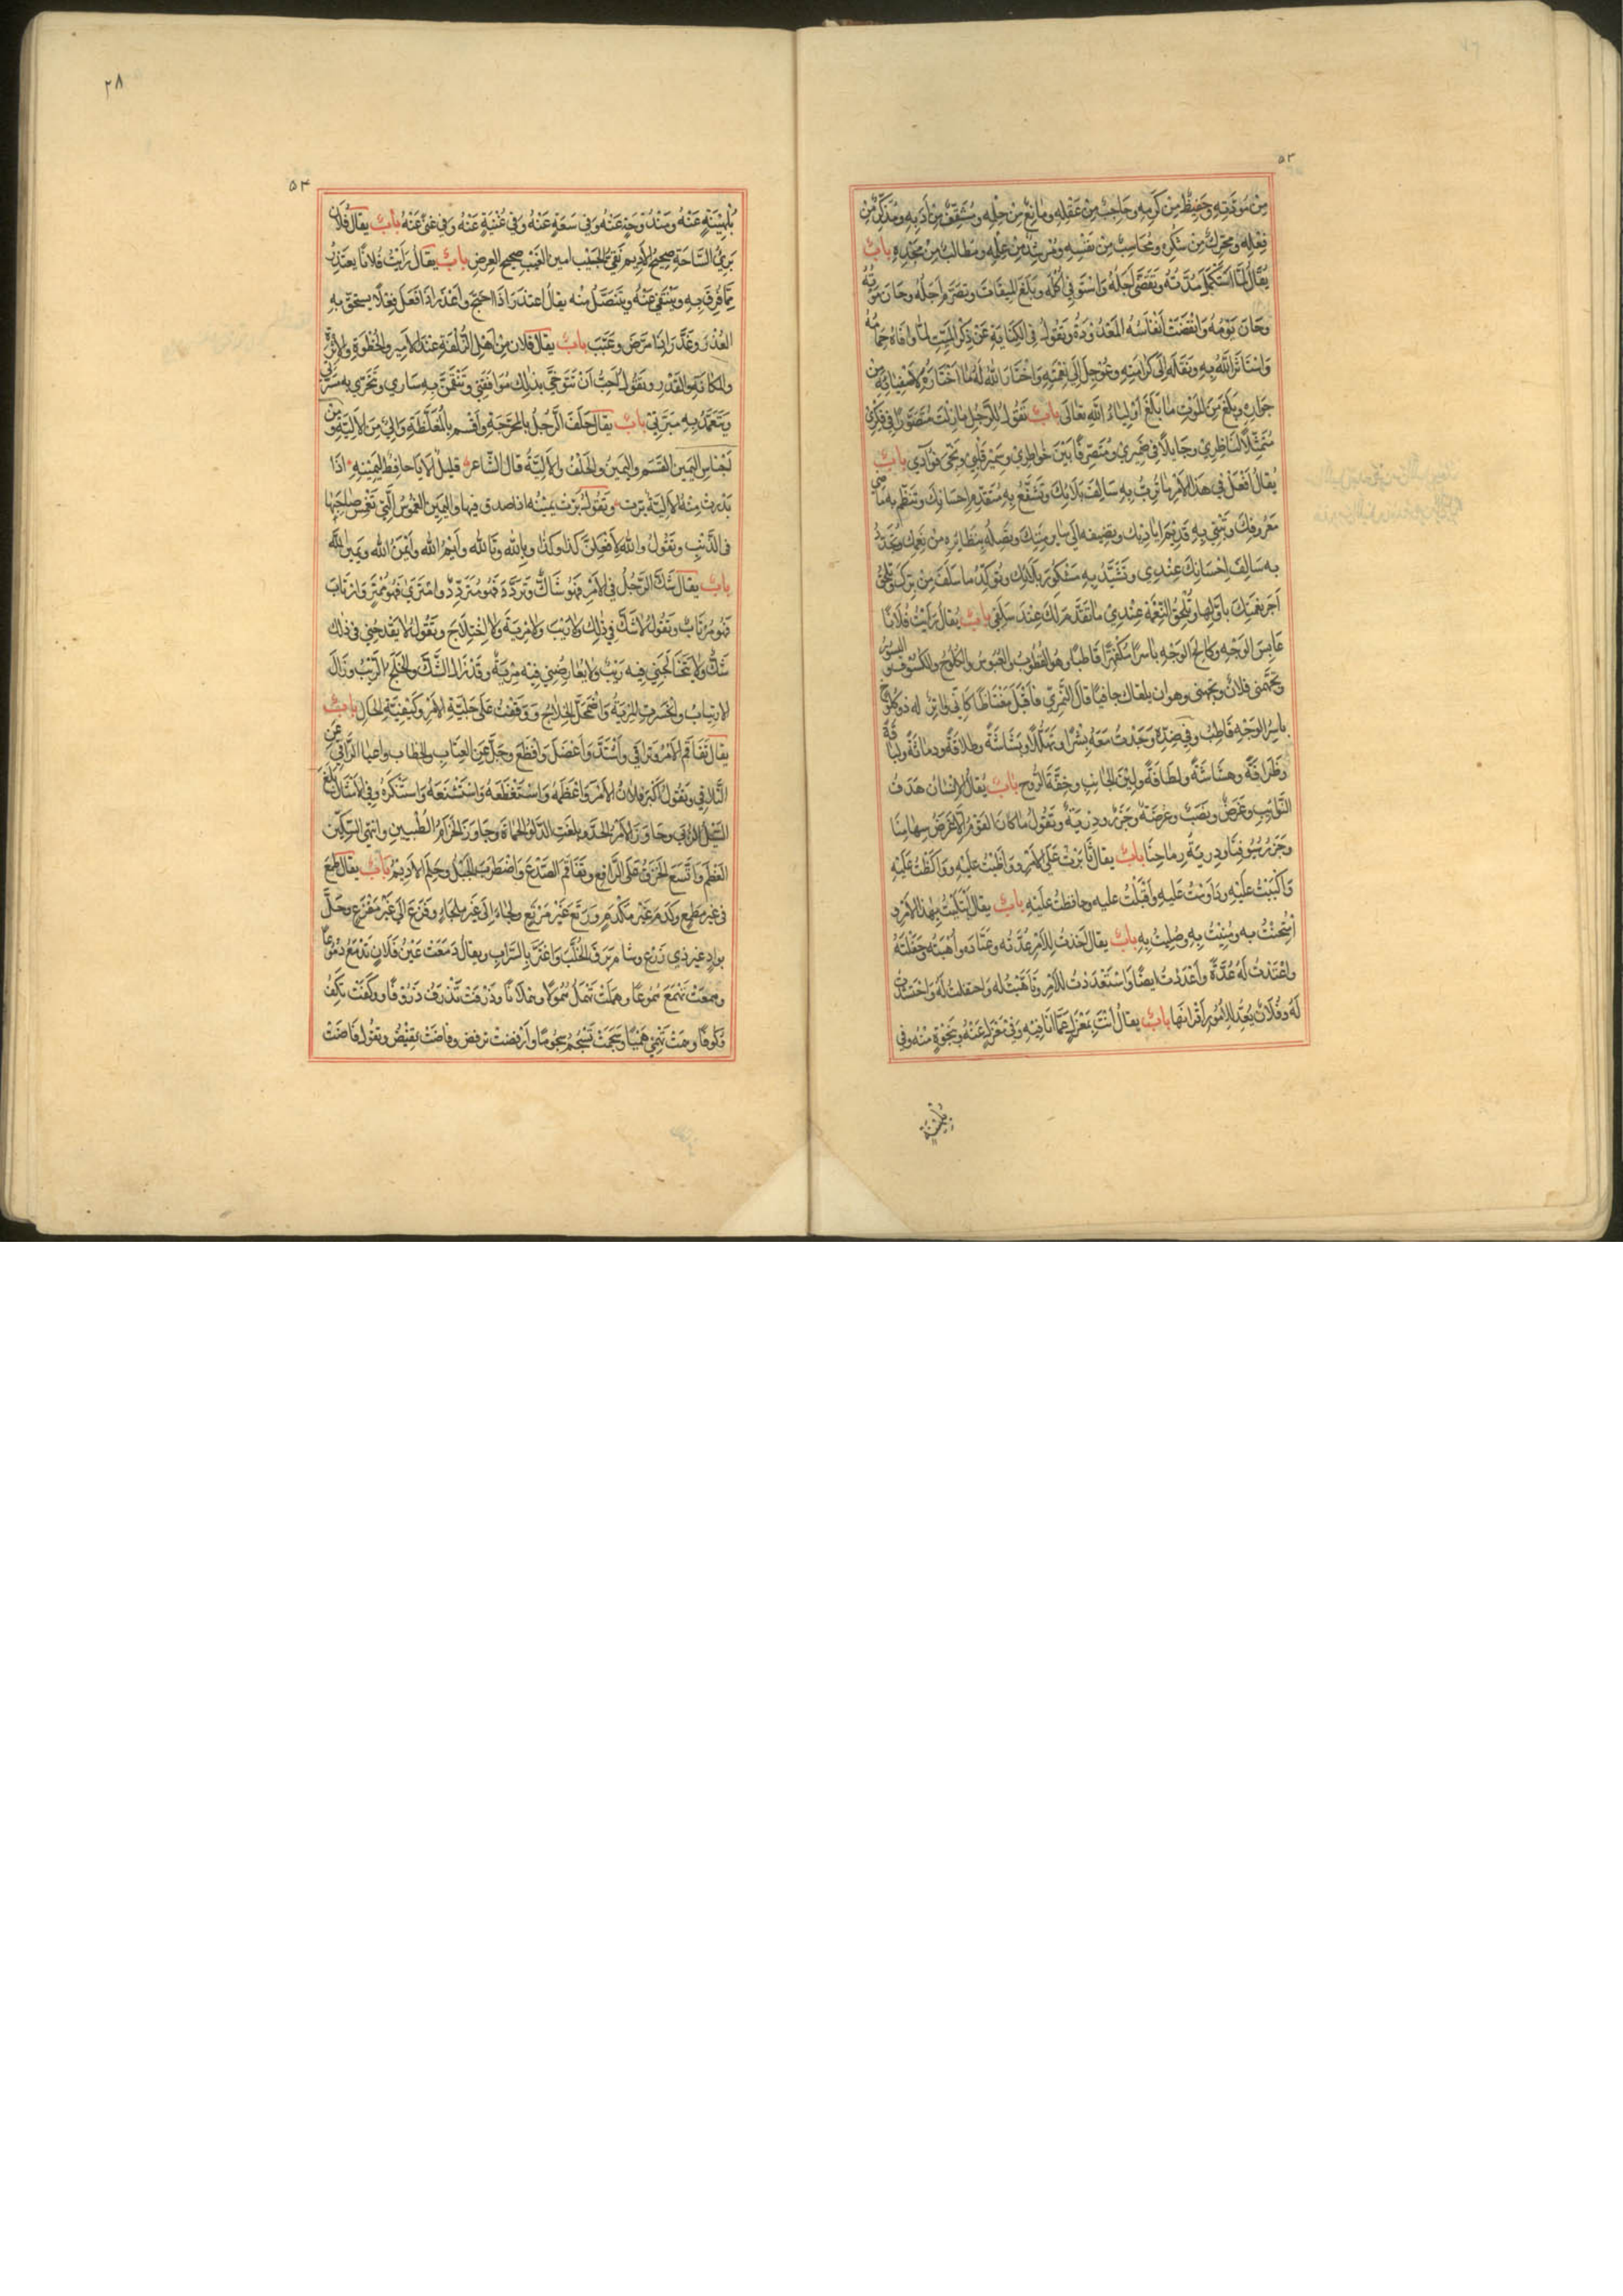 ٥٣
من مودته وحفيظ من كرمه وحاجب من عقله ومانع من حلمه ومثقف من أدبه ومذكر من
فعله ومحرك من شكره ومحاسب من نفسه ومرشد من علمه ومطالب من مجده باب
يقال لما استكمل مدته وتقضى أجله واستوفى أكله وبلغ الميقات وتصرم أجله وحان موته
وحان يومه وانقضت أنفاسه المعدودة وتقول في الكناية عن ذكر الميت لما وافاه حمامه
واستاثر الله به ونقله إلى كرامته وعوجل إلى نعمته واختار الله له ما اختاره لاصفيائه من
جواره وبلغ من الموت ما بلغ أولياء الله تعالى باب تقول للرجل ما زلت متصورا في فكري
متمثلا لناظري وجايلا في ضميري ومتصرفا بين خواطري وسمير قلبي ونجي فؤادي باب
يقال افعل في هذا الأمر ما ترب به سالف بلائك وتشفع به متقدم احسانك وتنظم به ماضي
معروفك وتبقي به قديم اياديك وتضيفه الى ساير مننك وتصله بنظائره من نعمك وتجدد
به سالف احسانك عندي وتشيد به مشكور بلائك وتوكد ما سلف من برك وتلحق
آخر نعمتك باولها وتلحق النعمة عندي ما تقدم لك عند سلفي باب يقال رأيت فلانا
عابس الوجه وكالح الوجه باسرا مكفهرا قاطبا وهو القطوب والعبوس والكلوح والكسوف والبسور
وتجهمني فلان وتجهني وهو ان يلقاك جافيا قال النمري فاقبل مغتاظا كاني لواتر له ذو كلوح
باسر الوجه قاطب وفي ضده وجدت معه بشرا وتهللا وبشاشة وطلاقة ودماثة ولباقة
وظرافة وهشاشة ولطافة ولين الجانب وخفة الروح باب يقال الإنسان هدف
النوايب وغرض ونصب وعرضة وجزر ودرية وتقول ما كان القوم إلا غرض سهامنا
وجزر سيوفنا ودرية رماحنا باب يقال ثابرت على الأمر وواظبت عليه وواكظت عليه
واكببت عليه وداومت عليه وأقبلت عليه وحافظت عليه باب يقال ابتليت بهذا الأمر و
امتحنت به ومنيت به وصليت به باب يقال أخذت للأمر عدته وعتاده وأهبته وحفلته
واعتددت له عدة وأعددت ايضا واستعددت للأمر وتأهبت له واحتفلت له واحتشدت
له وفلان يعد للأمور أقرانها باب يقال أنت بمعزل عما انا فيه وفي معزل عنه وبنجوة منه وفي
بلهنية
٢٨
٥٤
بلهنية عنه ومندوحة عنه وفي سعة عنه وفي غنية عنه وفي غنى عنه باب يقال فلان
بريء الساحة صحيح الأديم نقي الجيب امين الغيب صحيح العرض باب يقال رأيت فلانا يعتذر
مما قرف به وينتفي عنه ويتنصل منه يقال اعتذر إذا احتج وأعذر إذا فعل فعلا يستحق به
العذر وعذر إذا مرض وعتب باب يقال فلان من أهل الزلفة عند الأمير والحظوة والأثرة
والمكانة والقدر وتقول احب أن تتوخى بذلك موافقتي وتتقمن به ساري وتتحرى به مسرتي
وتتعمد به مبرتي باب يقال حلف الرجل بالمحرجة واقسم بالمغلظة وآلى من الألية ومن
أجناس اليمين القسم واليمين والحلف والألية قال الشاعر قليل الألايا حافظ ليمينه اذا
بدرت منه الألية برت وتقول برت يمينه اذا صدق فيها واليمين الغموس التي تغمس صاحبها
في الذنب وتقول والله لأفعلن كذا وكذا وبالله وتالله وأيم الله وأيمن الله ويمين الله
باب يقال شك الرجل في الأمر فهو شاك وتردد فهو متردد وامترى فهو ممتر وارتاب
فهو مرتاب وتقول لا شك في ذلك ولا ريب ولا مرية ولا اختلاج وتقول لا يقدحني في ذلك
شك ولا يتخالجني فيه ريب ولا يعارضني فيه مرية وقد زال الشك وانخلج الريب وزال
الارتياب وانحسرت المرية واضمحل الخلاج ووقفت على جلية الأمر وكيفية الحال باب
يقال تفاقم الأمر وتراقي واشتد وأعضل وافظع وجل عن العتاب والخطاب واعيا الراقي عن
التلافي وتقول أكبر فلان الأمر واعظمه واستفظعه واستشنعه واستنكره وفي الأمثال بلغ
السيل الزبى وجاوز الأمر الحد وبلغت الدلو الحماة وجاوز الحزام الطبيين وانتهى السكين
العظم واتسع الخرق على الراقع وتفاقم الصدع واضطرب الحبل وحلم الأديم باب يقال طمع
في غير مطمع وكدم غير مكدم ورتع غير مرتع ولجاء إلى غير ملجاء وفزع الى غير مفزع وحل
بواد غير ذي زرع وشام برق الخلب واغتر بالسراب ويقال دمعت عين فلان تدمع دموعا
وهمعت تهمع هموعا وهملت تهمل همولا وهملانا وذرفت تذرف ذروفا ووكفت تكف
وكوفا وهمت تهمي هميا وسجمت تسجم سجوما وارفضت ترفض وفاضت تفيض وتقول فاضت